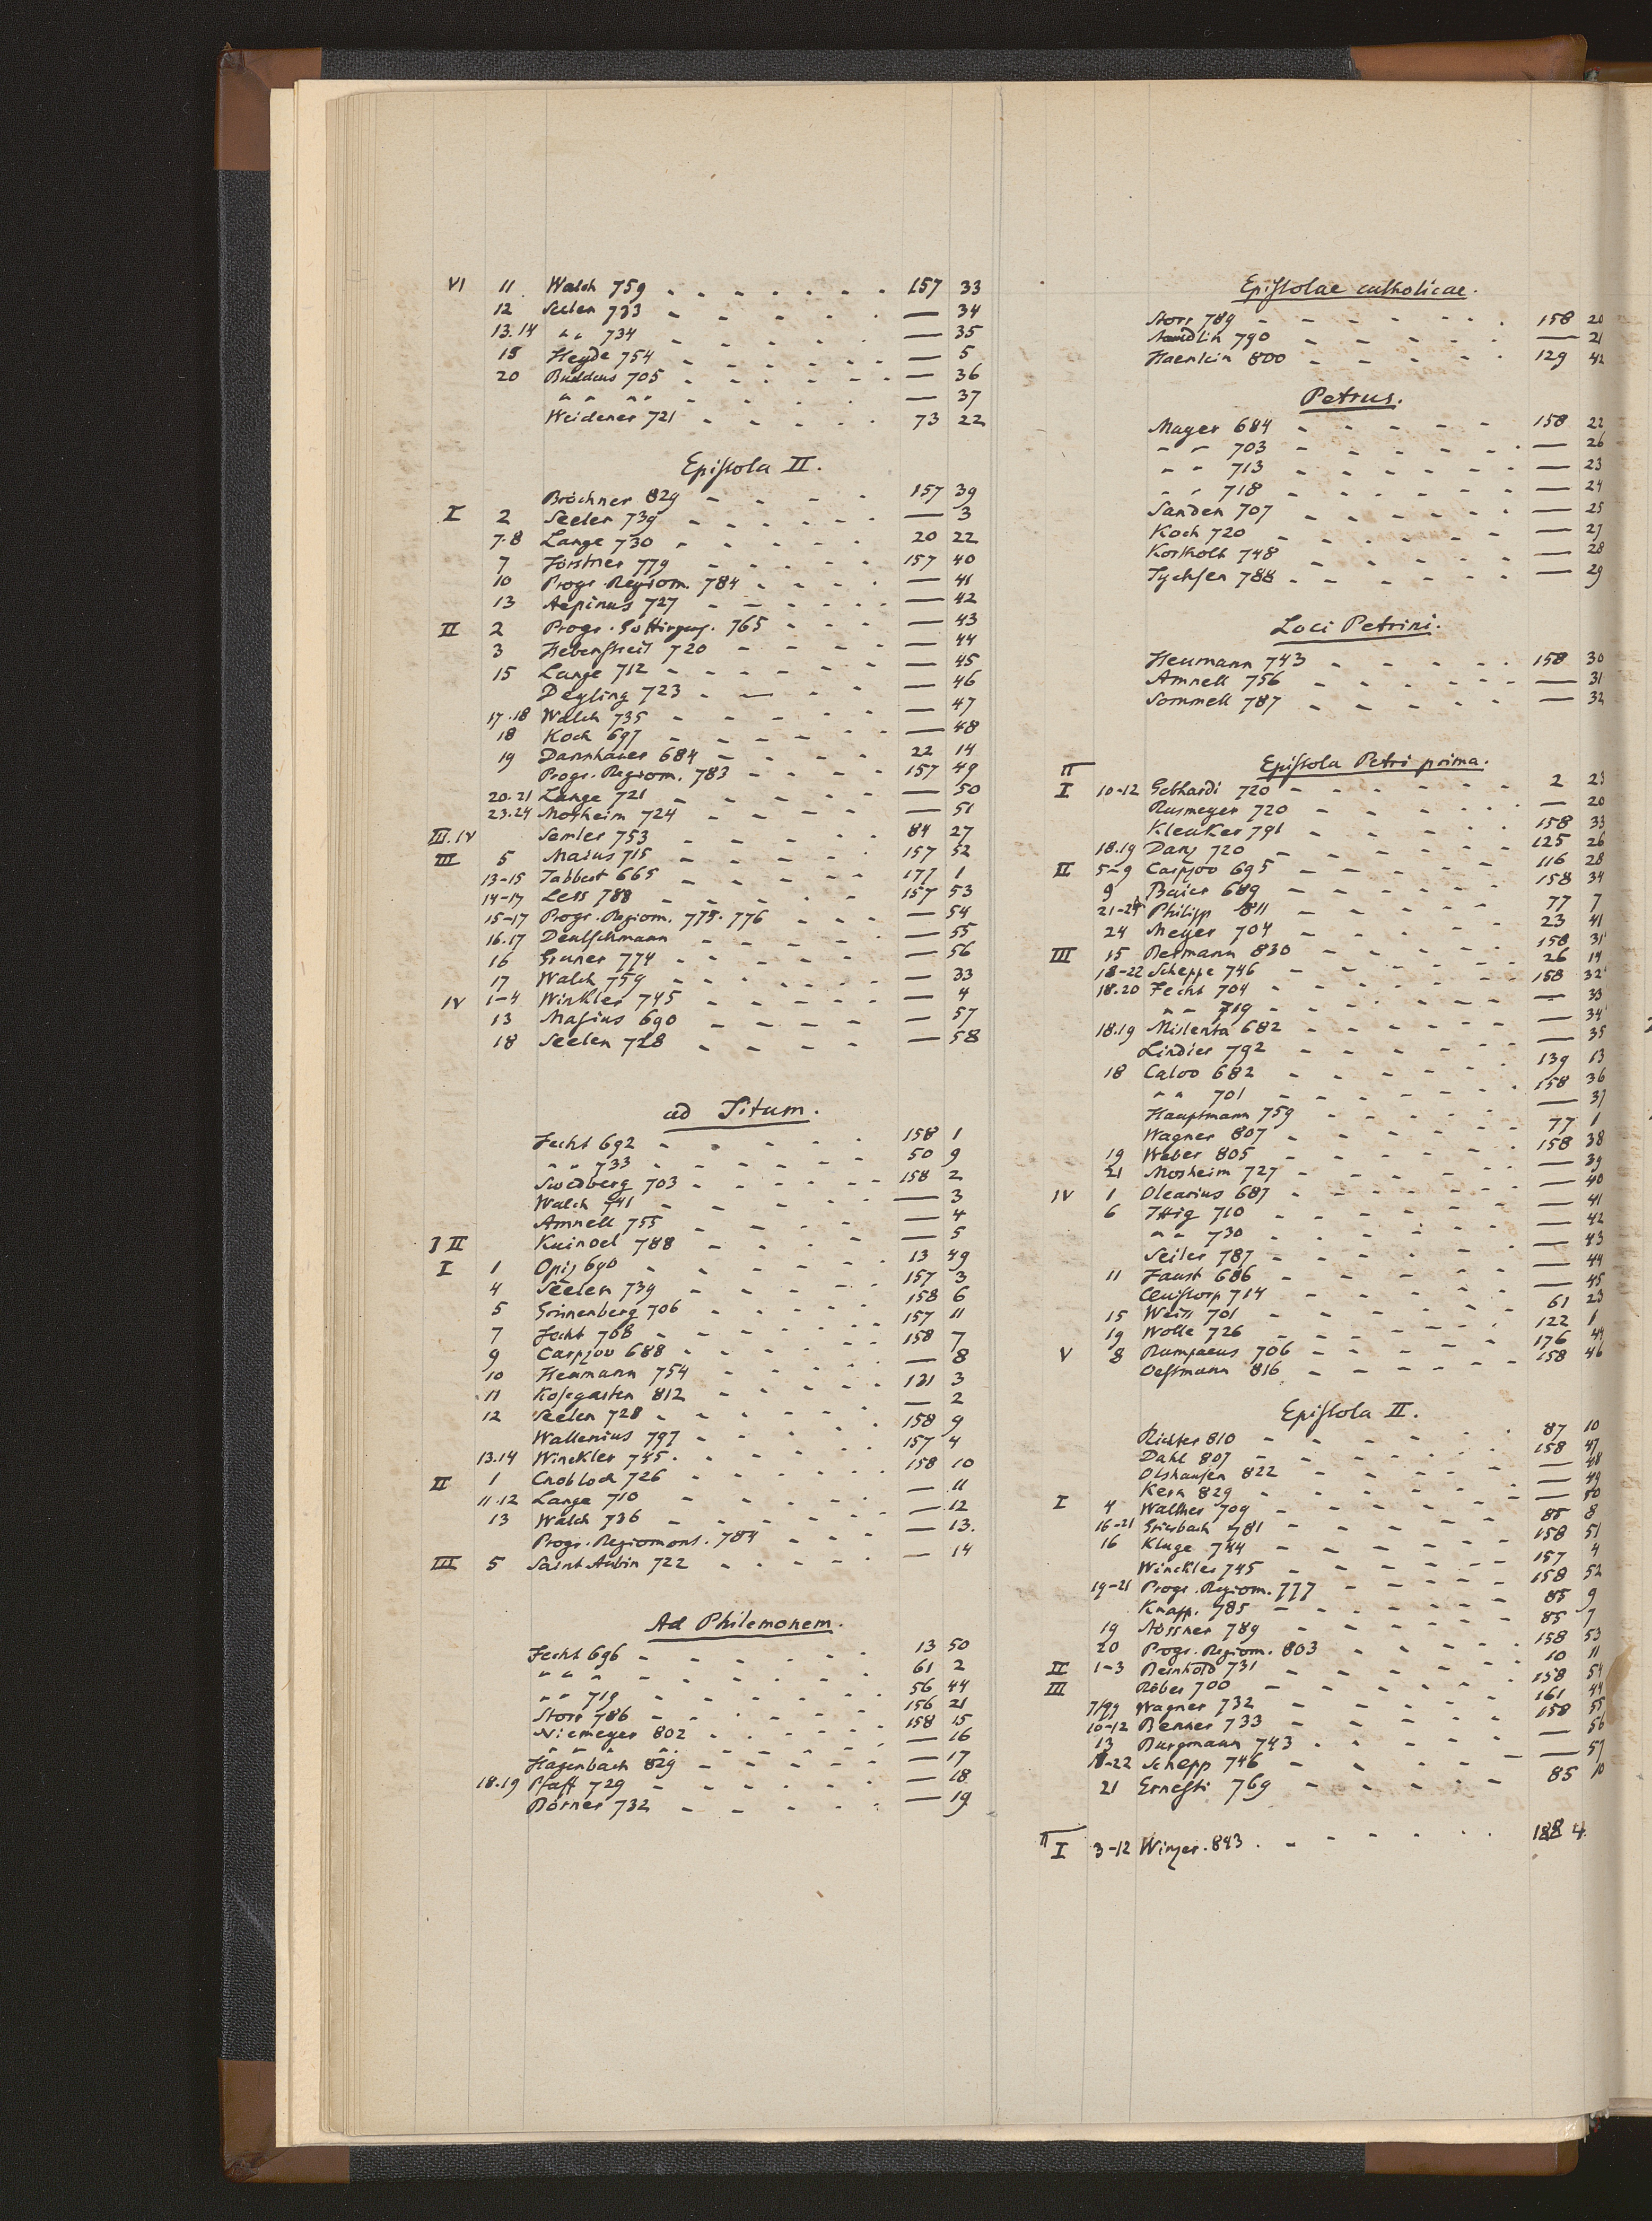 VI 11 Walch 759 157 33
12 Seelen 733 — 34
13.14 " " 734 — 35
18 Heyde 754 — 5
20 Buddeus 705 — 36
" " " " — 37
Weidener 721 73 22
Epistola II.
Bröchner 829 157 39
I 2 Seelen 739 — 3
7.8 Lange 730 20 22
7 Förstner 779 157 40
10 Progr. Regiom. 784 — 41
13 Aepinus 727 — 42
II 2 Progr. Gottingens. 765 — 43
3 Hebenstreit 720 — 44
15 Lange 712 — 45
Deyling 723 — 46
17.18 Walch 735 — 47
18 Koch 697 — 48
19 Dannhauer 684 22 14
Progr. Regiom. 783 157 49
20.21 Lange 721 — 50
23.24 Mosheim 724 — 51
III.IV Semler 753 84 27
III 5 Maius 715 157 52
13-15 Tabbert 665 177 1
14-17 Less 788 157 53
15-17 Progr. Regiom. 775. 776 — 54
16.17 Deutschmann — 55
16 Gruner 774 — 56
17 Walch 759 — 33
IV 1-4 Winkler 745 — 4
13 Masius 690 — 57
18 Seelen 728 — 58
ad Titum.
Fecht 692 158 1
" " 733 50 9
Swedberg 703 158 2
Walch 741 — 3
Amnell 755 — 4
I II Kuinoel 788 — 5
I 1 Opiz 690 13 49
4 Seelen 739 157 3
5 Grinenberg 706 158 6
7 Fecht 768 157 11
9 Carpzov 688 158 7
10 Heumann 754 — 8
11 Kosegarten 812 121 3
12 Seelen 728 — 2
Wallenius 797 158 9
13.14 Winckler 745. 157 4
II 1 Cnobloch 726 158 10
11.12 Lange 710 — 11
13 Walch 736 — 12
Progr. Regiomont. 784 — 13.
III 5 Saint Aubin 722 — 14
Ad Philemonem.
Fecht 696 13 50
" " " 61 2
" " 719 56 44
Storr 786 156 21
Niemeyer 802 158 15
" " " — 16
Hagenbach 829 — 17
18.19 Pfaff 729 — 18
Börner 732 — 19
Epistolae catholicae.
Storr 789 158 20
Staudlin 790 — 21
Haenlein 800 129 42
Petrus.
Mayer 684 158 22
" " 703 — 26
" " 713 — 23
" " 718 — 24
Sanden 707 — 25
Koch 720 — 27
Kortholt 748 — 28
Tychsen 788 — 29
Loci Petrini.
Heumann 743 158 30
Amnell 756 — 31
Sommell 787 — 32
Epistola Petri prima.
II
I 10-12 Gebhardi 720 2 23
Rusmeyer 720 — 20
Kleuker 791 158 33
18.19 Danz 720 125 26
II 5-9 Carpzov 695 116 28
9 Baier 689 158 34
21-24 Philipp 811 77 7
24 Meyer 704 23 41
III 15 Rermann 830 158 31
18-22 Scheppe 746 26 14
18.20 Fecht 704 158 32
" " 719 — 33
18.19 Mislenta 682 — 34
Lindier 792 — 35
18 Calov 682 139 13
" " 701 158 36
Hauptmann 759 — 37
Wagner 807 77 1
19 Weber 805 158 38
21 Mosheim 727 — 39
IV 1 Olearius 687 — 40
6 Ittig 710 — 41
" " 730 — 42
Seiler 787 — 43
11 Faust 686 — 44
714 — 45
15 Weiss 701 61 23
19 Wolle 726 122 1
V 8 Rumpaeus 706 176 44
Oestmann 816 158 46
Epistola II.
Richter 810 87 10
Dahl 807 158 47
Olshausen 822 — 48
Kern 829 — 49
I 4 Walther 709 — 50
16-21 Griesbach 781 85 8
16 Kluge 744 158 51
Winckler 745 157 4
19-21 Progr. Regiom. 777 158 52
Knapp. 785 85 9
19 Stössner 789 85 7
20 Progr. Regiom. 803 158 53
II 1-3 Reinhold 731 10 11
III Röber 700 158 54
Wagner 732 161 44
10-12 Benner 733 158 55
13 Burgmann 743 — 56
18-22 Schepp 746 — 57
21 Ernesti 769 85 10
II
I 3-12 Winzer. 843. 188 4.